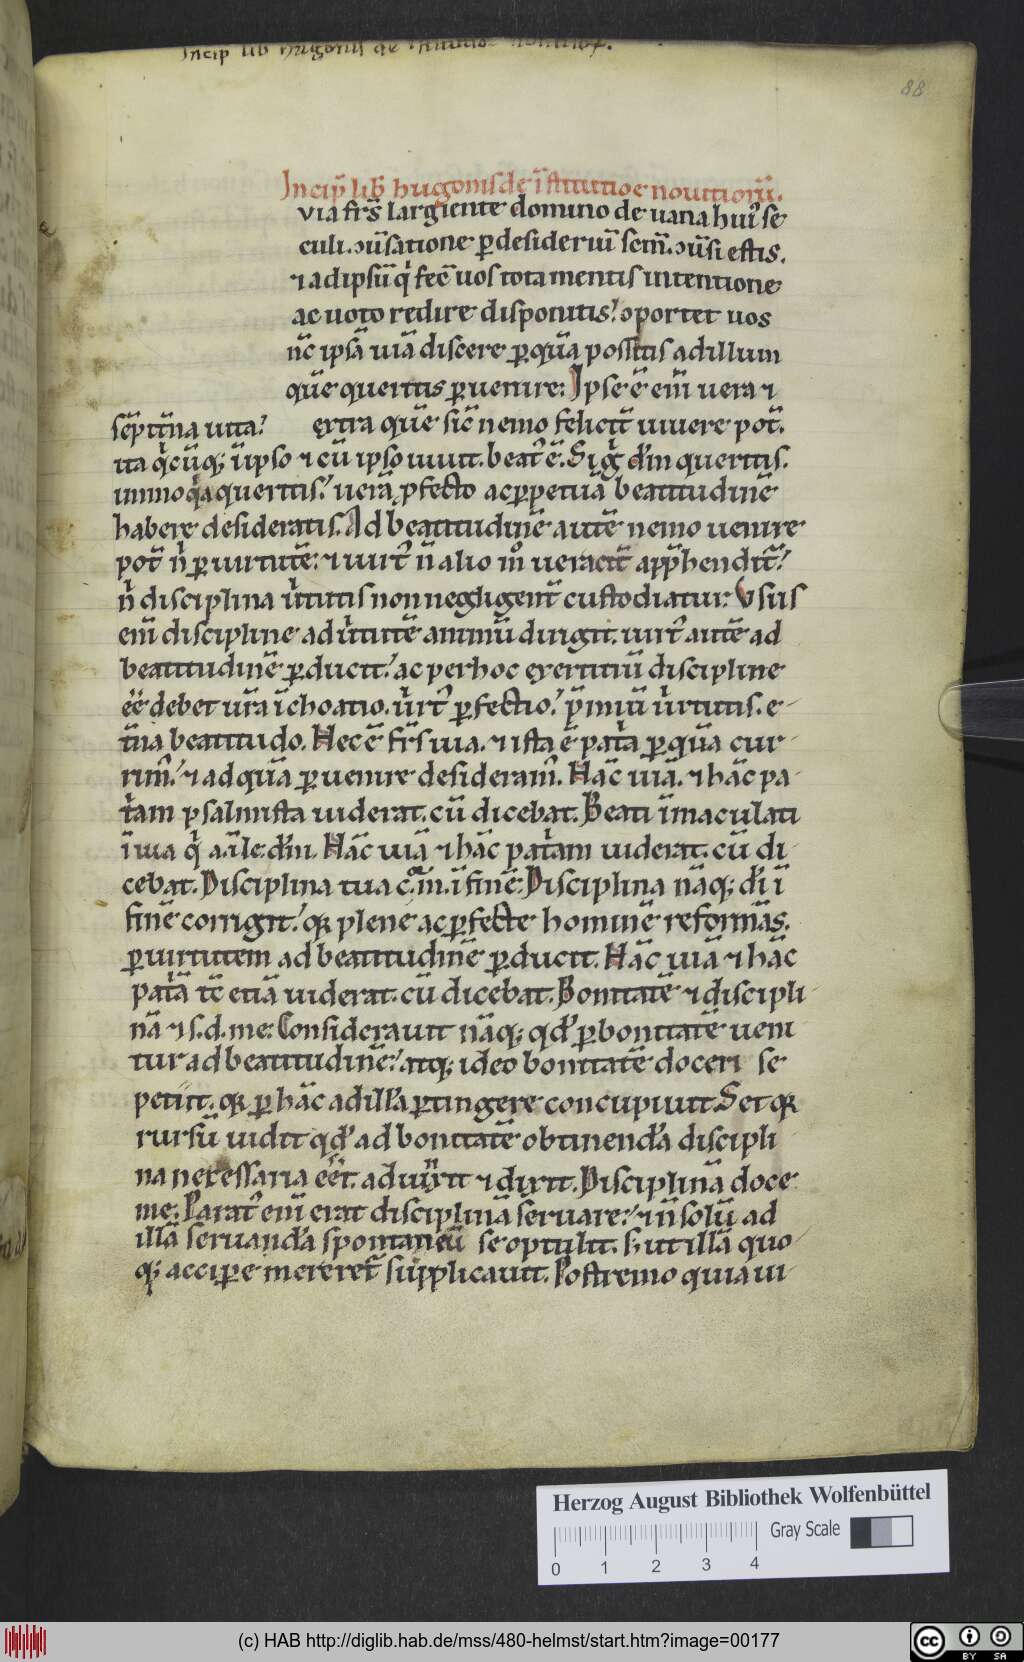 Incip lib hugonis de
88
Incip̄ lib̄ hugonis de īstitutioe nouitiorū.
via frs̄ largiente domino de uana hui᷒ se
culi ɔūsatione ꝑ desideriū sem̄ ɔūsi estis.
⁊ ad ipsū q̇ fec̄ uos tota mentis intentione
ac uoto redire disponitis? oportet uos
nc̄ ipsā uiā discere ꝑ quā possitis ad illum
quē queritis ꝑuenire: Ipse ē em̄ uera ⁊
sēpit̄na uita? extra quē sic̄ nemo felicit̄ uiuere pot̄.
ita q̇cūq; ī ipso ⁊ cū ipso uiuit. beat᷒ ē. Si g̊ dm̄ queritis.
immo q̇a queritis? uerā ꝓfecto ac ꝑpetuā beatitudinē
habere desideratis. Ad beatitudinē autē nemo uenire
pot̄ n̊ ꝑ uirtutē: ⁊ uirt᷒ n̄ alio m̊ ueracit̄ app̄hendit̄?
n̊ disciplina u̇tutis non negligent̄ custodiatur. Vsus
em̄ discipline ad u̇tutē animū dirigit. uirt᷒ autē ad
beatitudinē ꝑducit? ac per hoc exertitiū discipline
ēē debet ur̄a īchoatio. u̇t᷒ ꝑfectio? p̄miū u̇rtutis. e-
t̄na beatitudo. Hec ē frs̄ uia. ⁊ ista ē pat̊ia ꝑ quā cur-
rim᷒? ⁊ ad quā ꝑuenire desideram᷒. Hāc uiā. ⁊ hāc pa-
t̊iam psalmista uiderat. cū dicebat. Beati īmaculati
ī uia q̇ a. ī le. dm̄. Hāc uiā ⁊ hāc pat̊iam uiderat. cū di-
cebat. Disciplina tua c̄. m̄. ī finē. Disciplina nāq; dī ī
finē corrigit? qꝛ plene ac ꝑfecte hominē reformās.
ꝑ uirtutem ad beatitudinē ꝑducit. Hāc uiā ⁊ hāc
pat̊iā tc̄ etiā uiderat. cū dicebat. Bonitatē ⁊ discipli-
nā ⁊ s. d. me. Considerauit nāq; qd̓ ꝑ bonitatē ueni
tur ad beatitudinē? atq; ideo bonitatē doceri se
petiit. qꝛ ꝑ hāc ad illā ꝑtingere concupiuit. Set qꝛ
rursū uidit qd̓ ad bonitatē obtinendā discipli
na necessaria eēt. adiunxit ⁊ dixit. Disciplinā doce
me. Parat᷒ em̄ erat disciplinā seruare? ⁊ n̄ solū ad
illā seruandā spontaneū se optulit. s; ut illā quo-
q; accipe mereret̄ supplicauit. Postremo quia ui-
Herzog August Bibliothek Wolfenbüttel
Gray Scale
0 1 2 3 4
(c) HAB http://diglib.hab.de/mss/480-helmst/start.htm?image=00177
cc BY SA